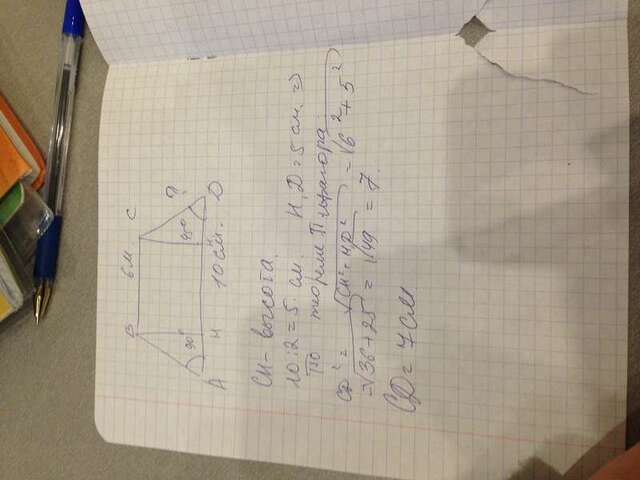 B 6м C
90° 45° ?
A H 10см. H D
CH - высота.
10:2=5 см. H,D=5 см. =>
По теореме Пифагора
CD² = √CH²+HD² = √6²+5²
=√36+25 = √49 = 7.
CD = 7см